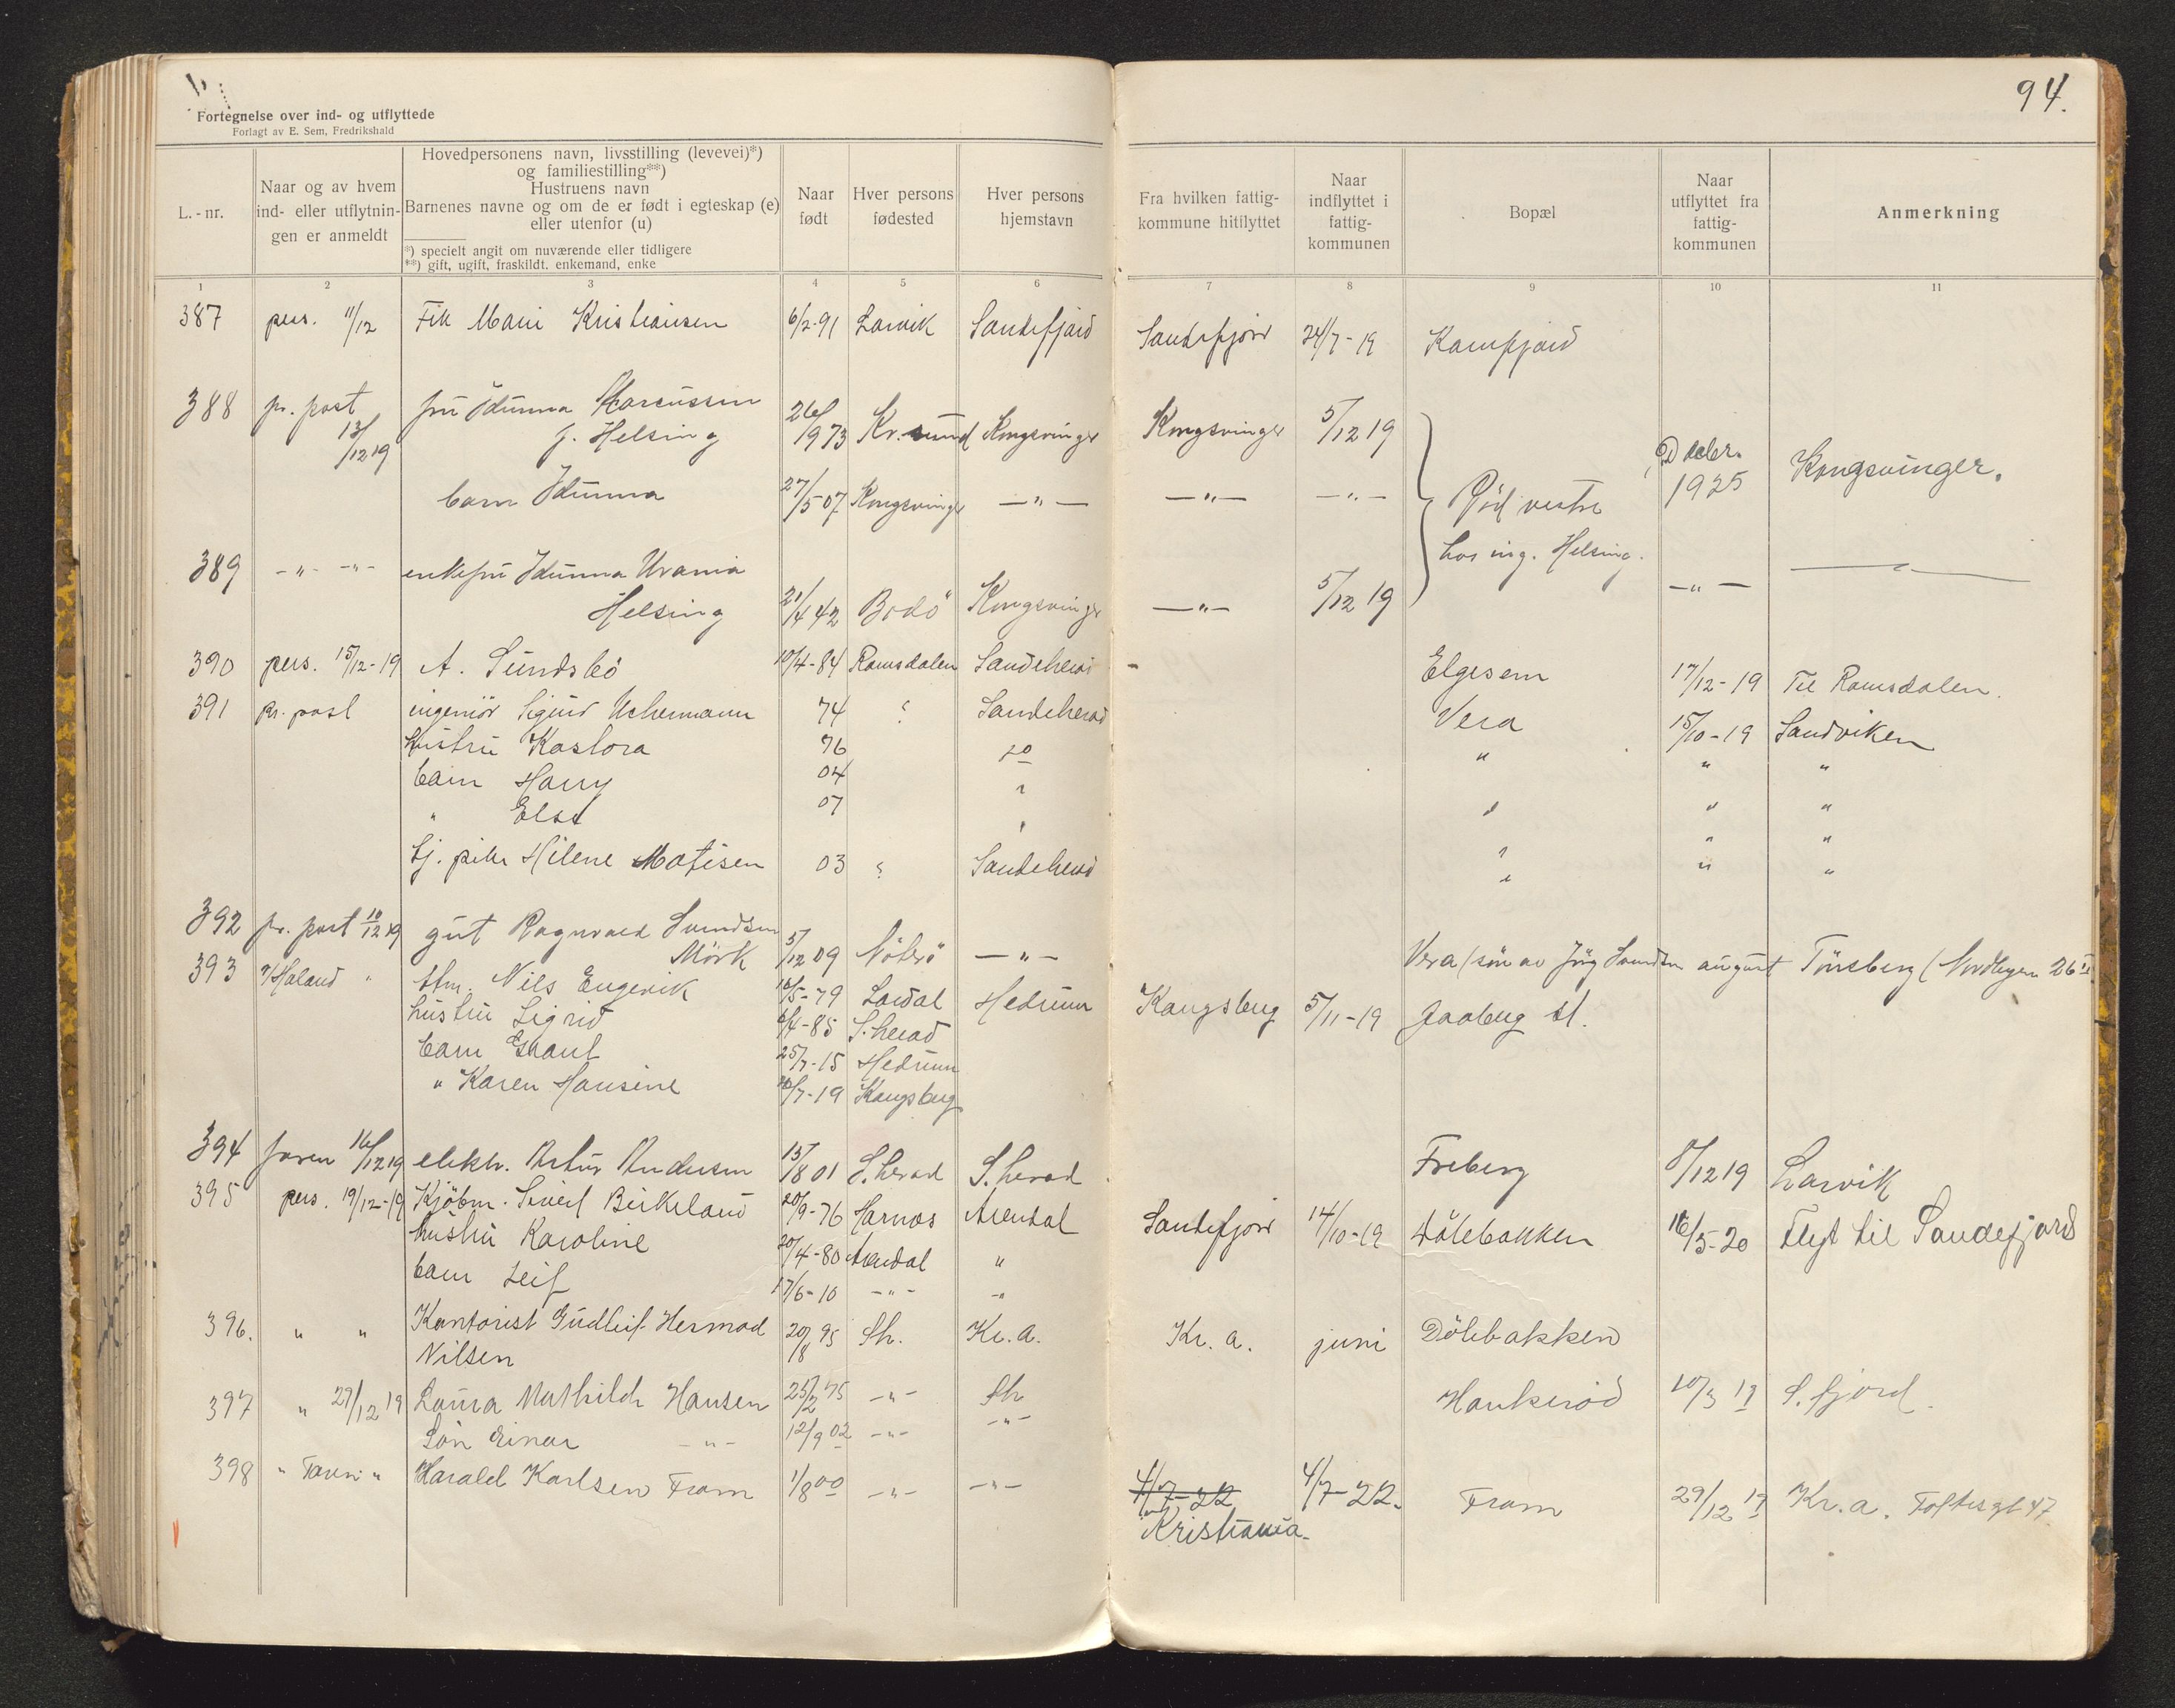 94.
Fortegnelse over ind- og utflyttede
Forlagt av E. Sem, Fredrikshald
L.-nr.
Naar og av hvem ind- eller utflytnin- gen er anmeldt
Hovedpersonens navn, livsstilling (levevei)*)
og familiestilling**)
Hustruens navn
Barnenes navne og om de er født i egteskap (e)
eller utenfor (u)
*) specielt angit om nuværende eller tidligere
**) gift, ugift, fraskildt. enkemand, enke
Naar født
Hver persons fødested
Hver persons hjemstavn
Fra hvilken fattig- kommune hitilyttet
Naar indflyttet i fattig- kommunen
Bopæl
Naar utflyttet fra fattig- kommunen
Anmerkning
1 2 3 4 5 6 7 8 9 10 11
387 pers. 11/12 Frk Marie Kristiansen 6/2-91 Larvik Sandefjord Sandefjord 24/7-19 Kamfjord
388 pr. post fru Idunna Marcussen
13/12 19 f. Helsing 26/9 73 Kr.sund Kongsvinger Kongsvinger 5/12 19
Barn Idunna 27/5 07 Kongsvinger —"— —"— —"— Rød vestre Decbr. 1925 Kongsvinger.
hos ing. Helsing.
389 -"- -"- enkefru Idunna Urania
Helsing 21/4 42 Bodö Kongsvinger —"— 5/12 19 —"—
390 pers. 15/12-19 A. Sundsbö 10/4-84 Romsdalen Sandeherad - Elgesem 17/12-19 Til Romsdalen.
391 pr. post ingeniör Sigurd Uchermann 74 Sandeherad Vera 15/10-19 Sandviken
hustru Kastora 76 do " " "
barn Harry 04 " " " "
" Else 07 " " " "
tj. pike Hilene Matisen 03 Sandeherad " " "
392 pr. post 10/12 19 gut Ragnvald Svendsen
Mörk 5/12 09 Nöterö —"— Vera (sön av Jörg Svendsen august Tönsberg (Nordbyen 26 II
393 Haland " Nils Engevik 16/5-79 Lardal Hedrum Kongsberg 5/11-19 Jaaberg st.
hustru Sigrid 6/4-85 S.herad
barn 25/7-15 Hedrum
" Karen Hansine 20/7-19 Kongsberg
394 faren 16/12 19 elektr. Artur Andersen 15/8 01 S.herad S.herad Freberg 8/12 19 Larvik
395 pers. 19/12-19 Kjöbm. Birkeland 20/9-76 Arendal Sandefjord 14/10-19 Dölebakken 16/5-20 Flyt til Sandefjord
hustru Karoline 20/4-80 Arendal "
barn Leif 17/6-10 -"- -"
396. " " Kontorist Gudleif Hermod 20/8 95 Sh. Kr.a. Kr.a. juni Dölebakken
Nilsen
397 " 29/12 19 Laura Mathilde Hansen 25/2 75 -"- Sh Haukeröd 10/3 19 S.fjord.
Sön Einar -"- 12/9 02 -"- -"-
398 " Faren " Harald Karlsen Fram 1/8 00 -"- -"- 4/7-22 4/7-22. Fram 29/12 19 Kr.a. Toftesgt 47
Kristiania.